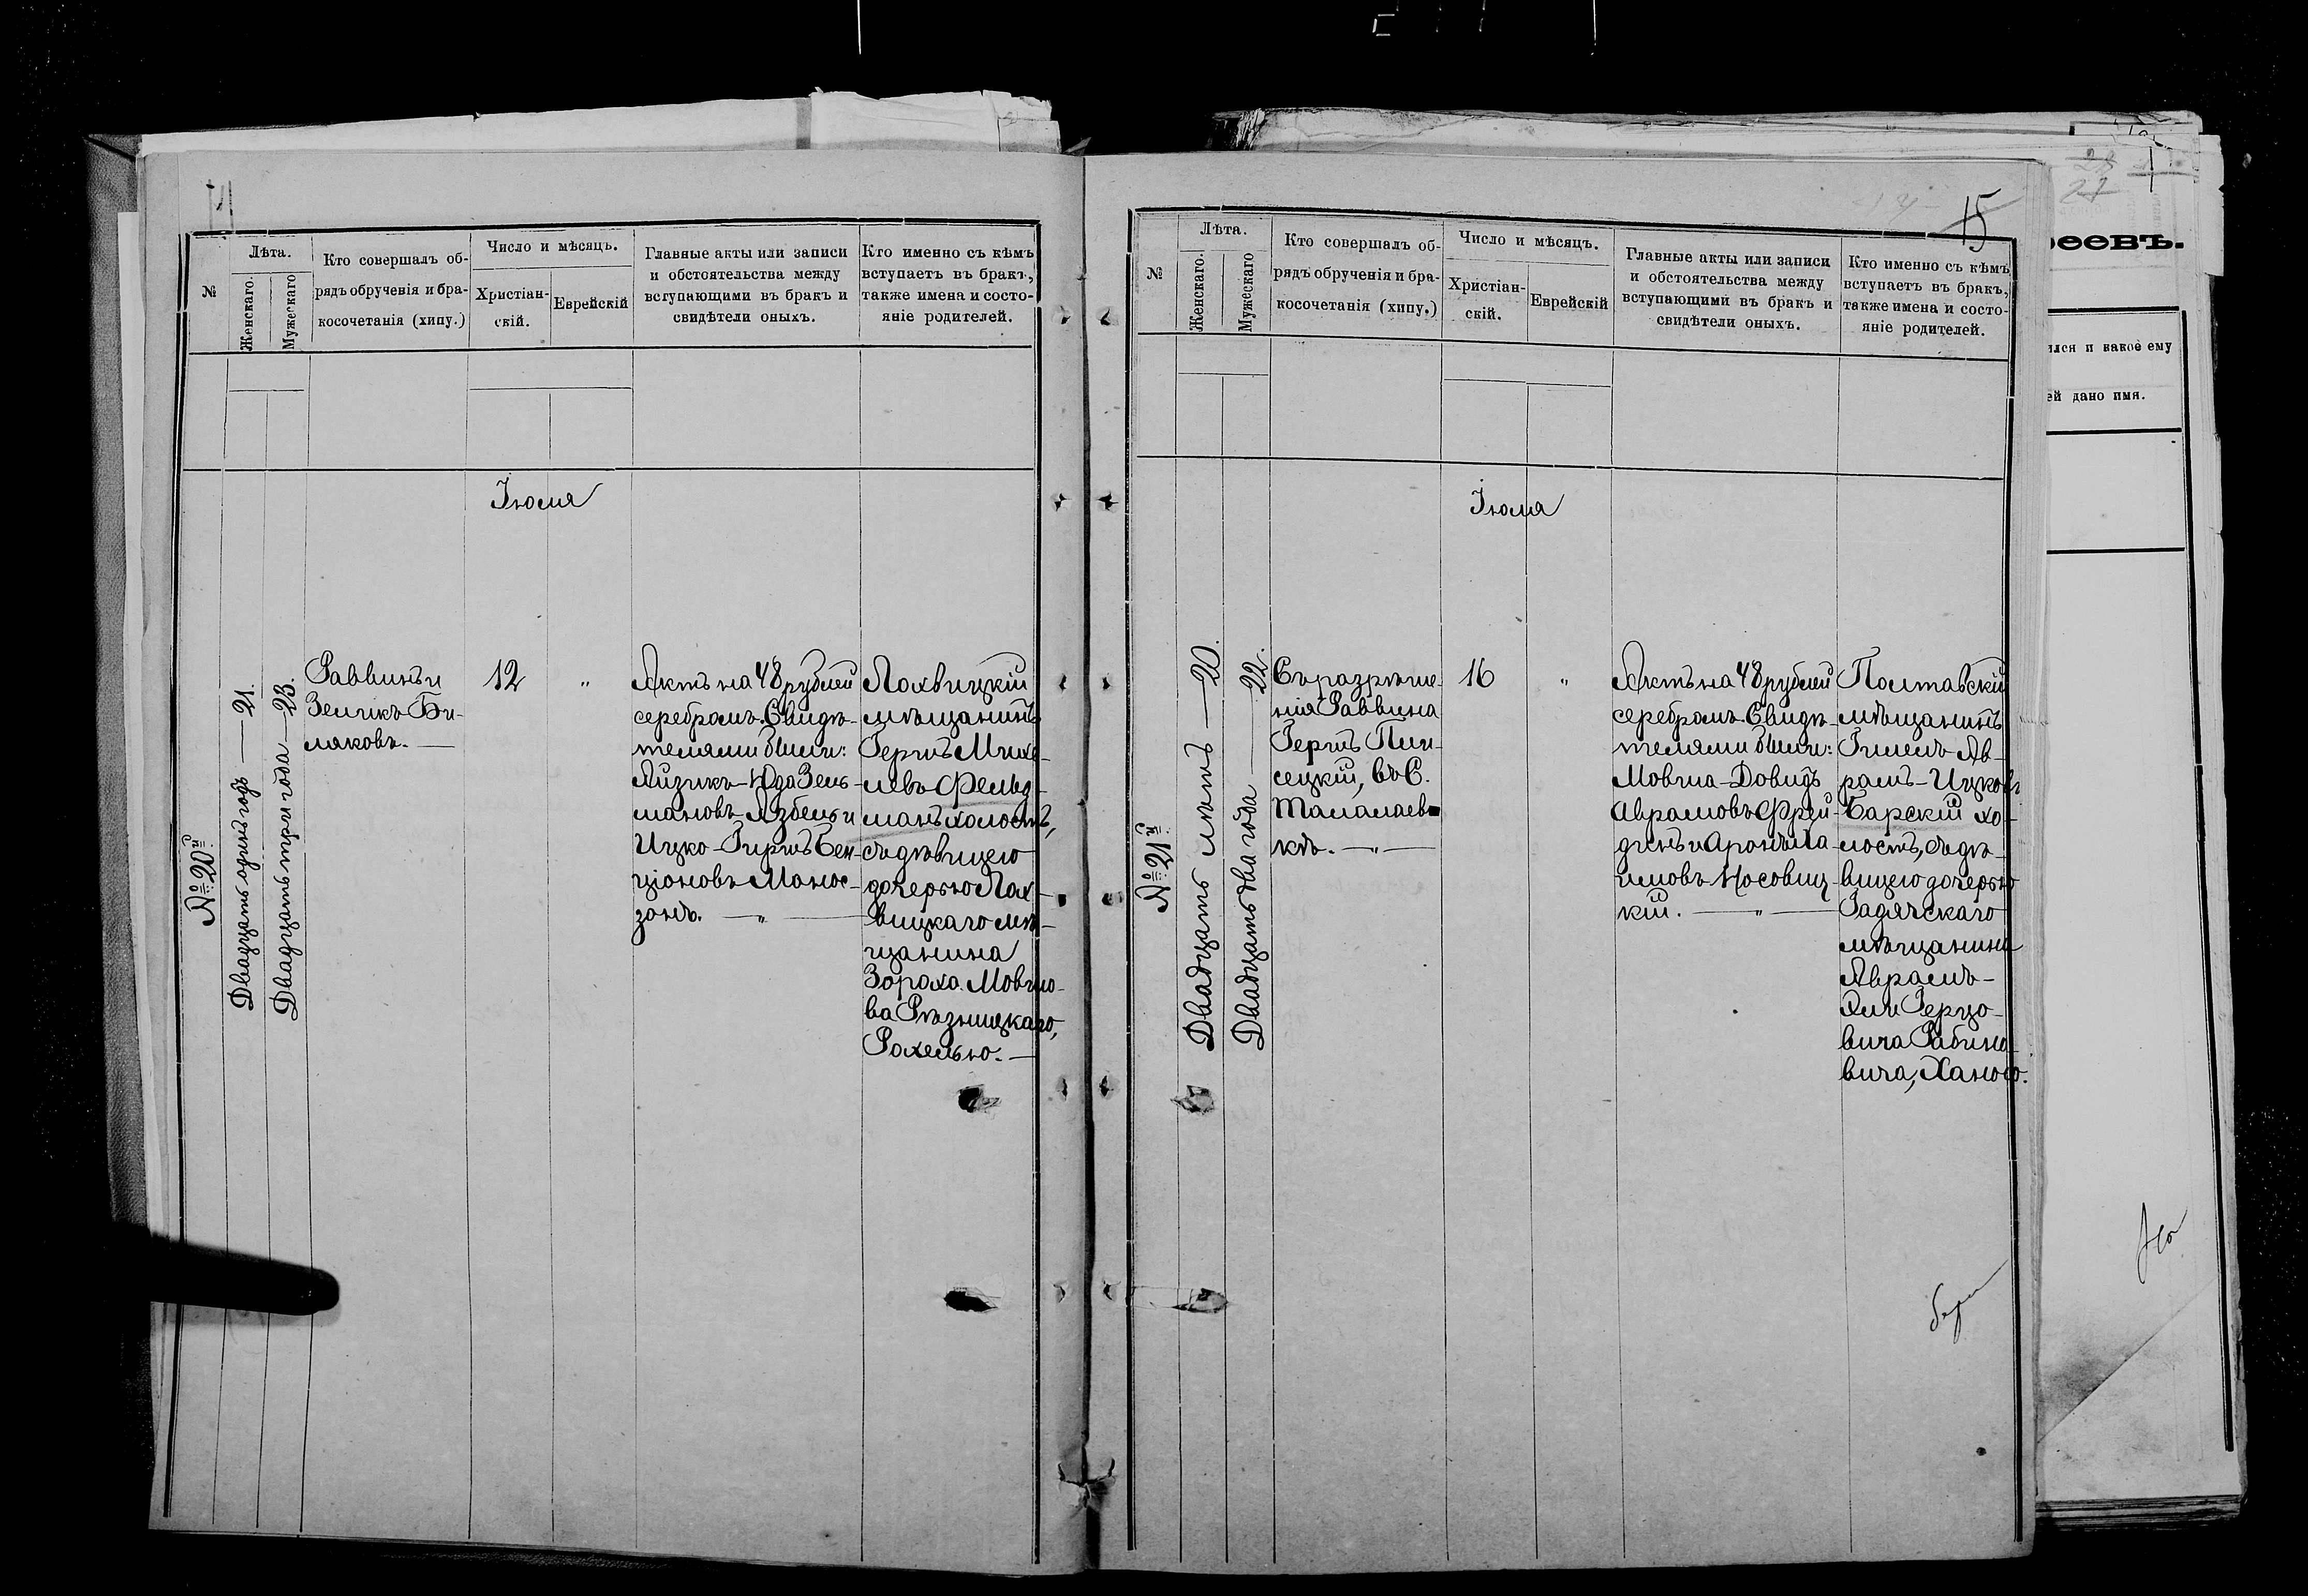 №
Лѣта.
Женскаго.
Мужескаго
Кто совершалъ об-
рядъ обрученія и бра-
косочетанія (хипу.)
Число и мѣсяцъ.
Христіан-
скій.
Еврейскій
Главные акты или записи
и обстоятельства между
вступающими въ бракъ и
свидѣтели оныхъ.
Кто именно съ кѣмъ
вступаетъ въ бракъ,
также имена и состо-
яніе родителей.
Іюля
№ 20й
Двадцать одинъ годъ — 21.
Двадцать три года — 23.
Раввинъ
Зеликъ Би-
ляковъ. —
12
"
Актъ на 48 рублей
серебромъ. Свидѣ-
телями были:
Айзикъ-Юда Зель-
мановъ Язбель и
Ицко-Гиршъ Бен-
ціоновъ Манос-
зонъ. — " —
Лохвицкій
мѣщанинъ
Гершъ Михе-
левъ Фельд-
манъ холостъ,
съ дѣвицею
дочерью Лох-
вицкаго мѣ-
щанина
Зораха Мовшо-
ва Рѣзницкаго,
Рохелью. —
15
№
Лѣта.
Женскаго.
Мужескаго
Кто совершалъ об-
рядъ обрученія и бра-
косочетанія (хипу.)
Число и мѣсяцъ.
Христіан-
скій.
Еврейскій
Главные акты или записи
и обстоятельства между
вступающими въ бракъ и
свидѣтели оныхъ.
Кто именно съ кѣмъ
вступаетъ въ бракъ,
также имена и состо-
яніе родителей.
Іюля
№ 21й
Двадцать лѣтъ — 20.
Двадцать два года — 22.
Съ разрѣше-
нія Раввина
Гершъ Пли-
сецкій, въ С.
Талалаев-
кѣ. — " —
16
"
Актъ на 48 рублей
серебромъ. Свидѣ-
телями были:
Мовша-Довидъ
Аврамовъ Фрей-
динъ и Аронъ Ха-
имовъ Носовиц-
кій. — " —
Полтавскій
мѣщанинъ
Гилель Ав-
рамъ-Ицковъ
Барскій хо-
лостъ, съ дѣ-
вицею дочерью
Гадячскаго
мѣщанина
Аврамъ-
Эли Герцо-
вича Рабино-
вича, Ханою.
еевъ.
лся и какое ему
ей дано имя.